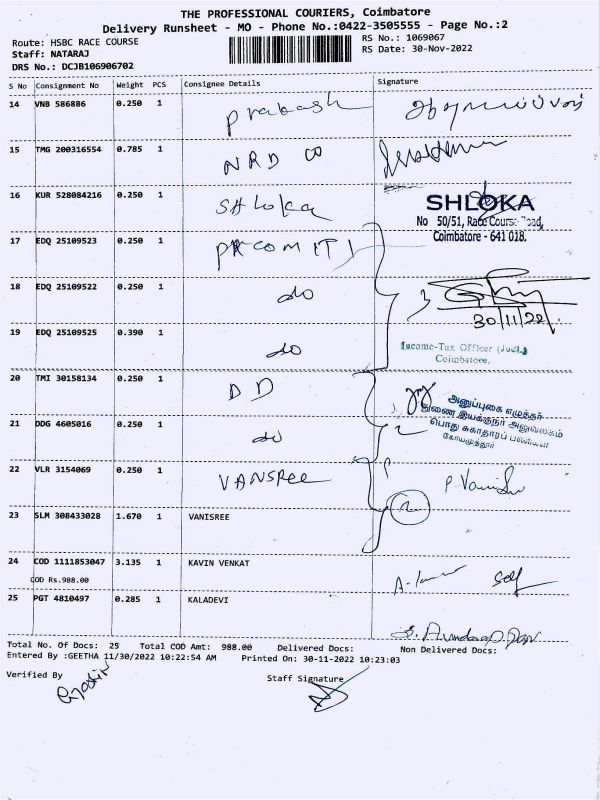 THE PROFESSIONAL COURIERS, Coimbatore
Delivery Runsheet - MO - Phone No.:0422-3505555 - Page No.:2
Route: HSBC RACE COURSE
RS No.: 1069067
Staff: NATARAJ
RS Date: 30-Nov-2022
DRS No.: DCJB106906702
S No Consignment No Weight PCS Consignee Details Signature
14 VNB 586886 0.250 1 Prakash
15 TMG 200316554 0.785 1 NRD
16 KUR 528084216 0.250 1 Shloka
SHLOKA
No 50/51, Race Course Road,
Coimbatore - 641 018.
17 EDQ 25109523 0.250 1
18 EDQ 25109522 0.250 1 do
3
30/11/22
19 EDQ 25109525 0.390 1 do
Income-Tax Officer (Judl.)
Coimbatore.
20 TMI 30158134 0.250 1 DD
அனுப்புகை எழுத்தர்
துணை இயக்குநர் அலுவலகம்
பொது சுகாதாரப் பணிகள்
கோயமுத்தூர்
21 DDG 4605016 0.250 1 do
2
22 VLR 3154069 0.250 1 VANSREE
23 SLM 308433028 1.670 1 VANISREE
2
24 COD 1111853047 3.135 1 KAVIN VENKAT
self
COD Rs.988.00
25 PGT 4810497 0.285 1 KALADEVI
Total No. Of Docs: 25 Total COD Amt: 988.00 Delivered Docs: Non Delivered Docs:
Entered By :GEETHA 11/30/2022 10:22:54 AM Printed On: 30-11-2022 10:23:03
Verified By
Staff Signature